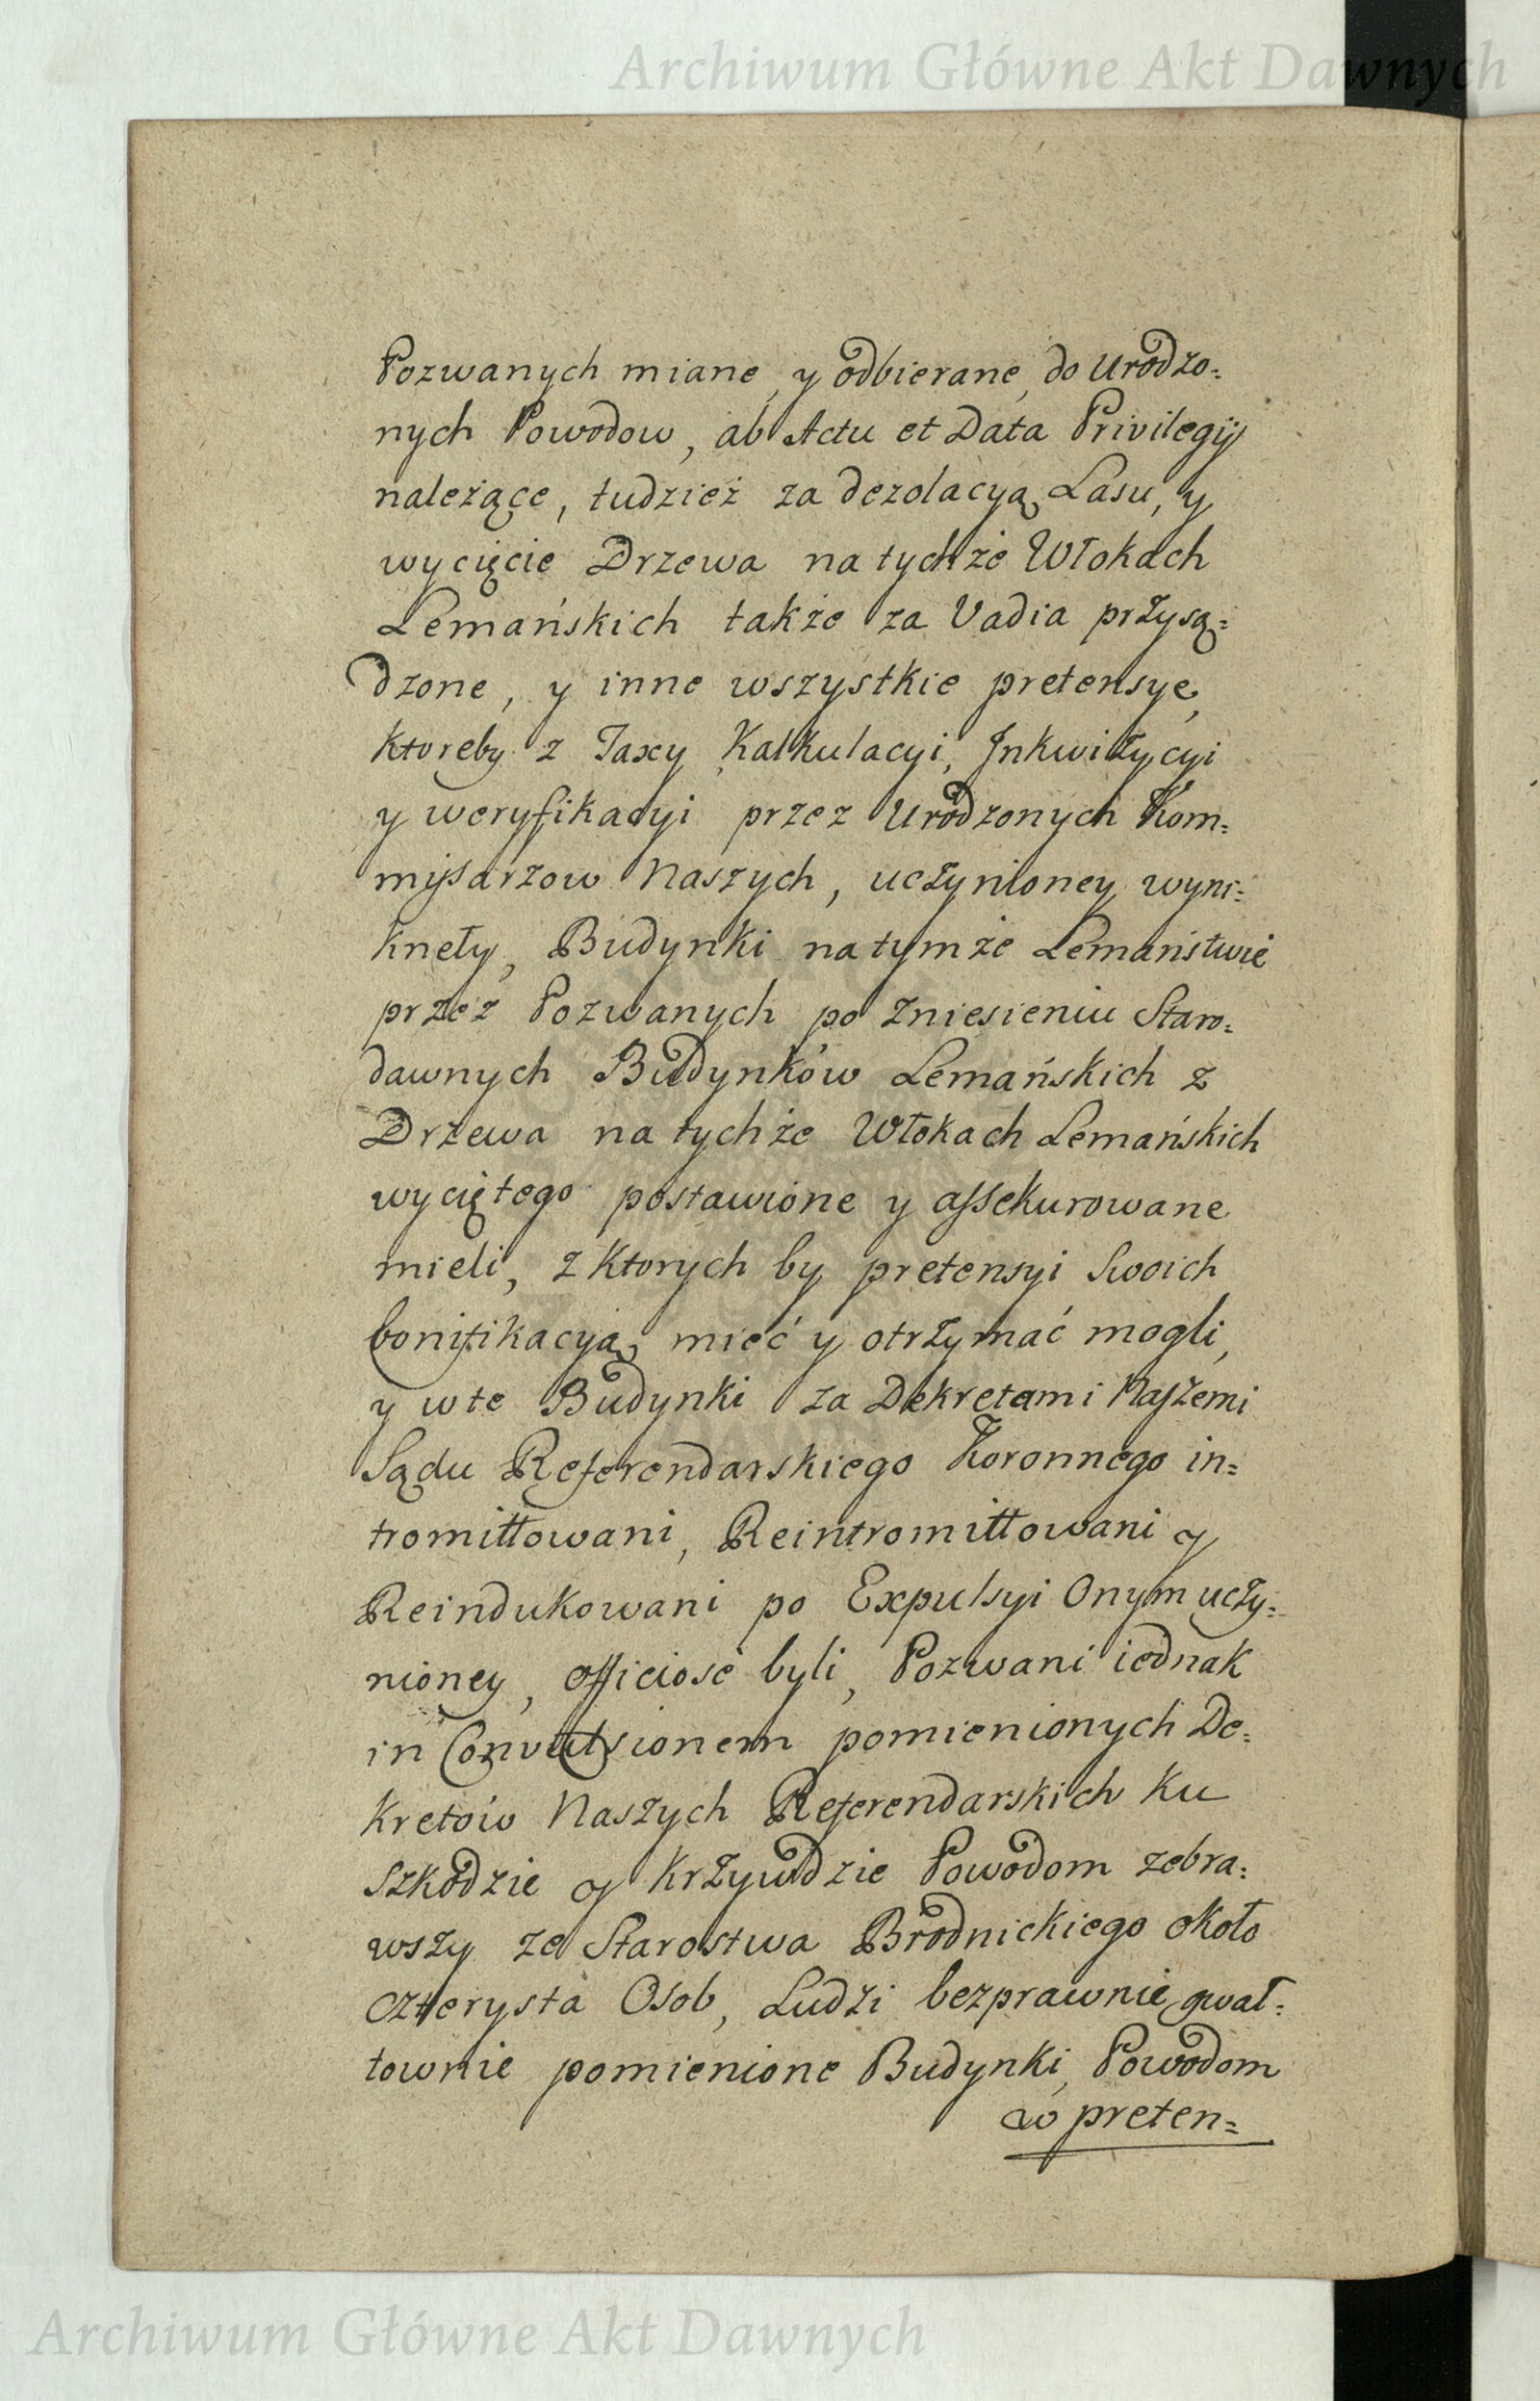 Archiwum Główne Akt Dawnych
Pozwanych miane, y odbierane, do Urodzo=
nych Powodow, ab Actu et Data Privilegij
należące, tudzież za dezolacyą Lasu, y
wycięcie Drzewa na tychże Włokach
Lemańskich także za Vadia przysą=
dzone, y inne wszystkie pretensye,
ktoreby z Taxy, Kalkulacyi, Inkwizycyi
y weryfikacyi przez Urodzonych Kom=
missarzow Naszych, uczynioney wyni=
kneły, Budynki na tymże Lemaństwie
przez Pozwanych po zniesieniu Staro=
dawnych Budynków Lemańskich z
Drzewa na tychże Włokach Lemańskich
wyciętego postawione y assekurowane
mieli, z ktorych by pretensyi Swoich
bonifikacyą, mieć y otrzymać mogli,
y w te Budynki za Dekretami Naszemi
Sądu Referendarskiego Koronnego in=
tromittowani, Reintromittowani y
Reindukowani po Expulsyi Onym uczy=
nioney, officiose byli, Pozwani iednak
in Convulsionem pomienionych De=
kretów Naszych Referendarskich ku
szkodzie y krzywdzie Powodom zebra=
wszy ze Starostwa Brodnickiego około
czterysta Osob, Ludzi bezprawnie gwał=
townie pomienione Budynki, Powodom
w preten=
Archiwum Główne Akt Dawnych